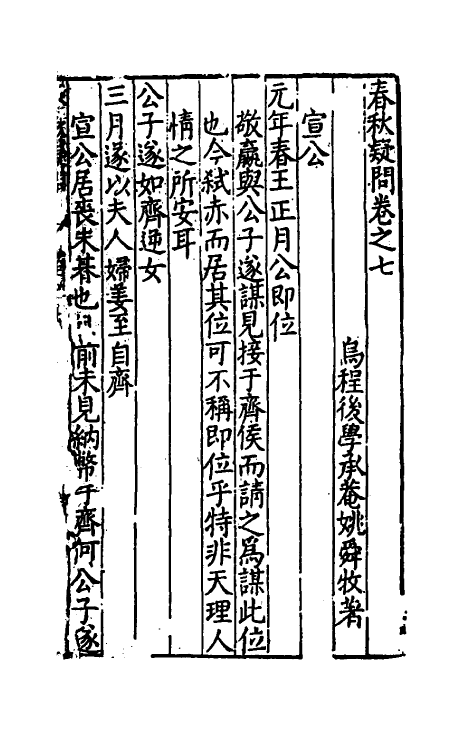 春秋疑問卷之七
烏程後學承菴姚舜牧著
宣公
元年春王正月公即位
敬嬴與公子遂謀見接于齊侯而請之爲謀此位
也今弒赤而居其位可不稱即位乎特非天理人
情之所安耳
公子遂如齊逆女
三月遂以夫人婦姜至自齊
宣公居喪未朞也前未見納幣于齊何公子遂